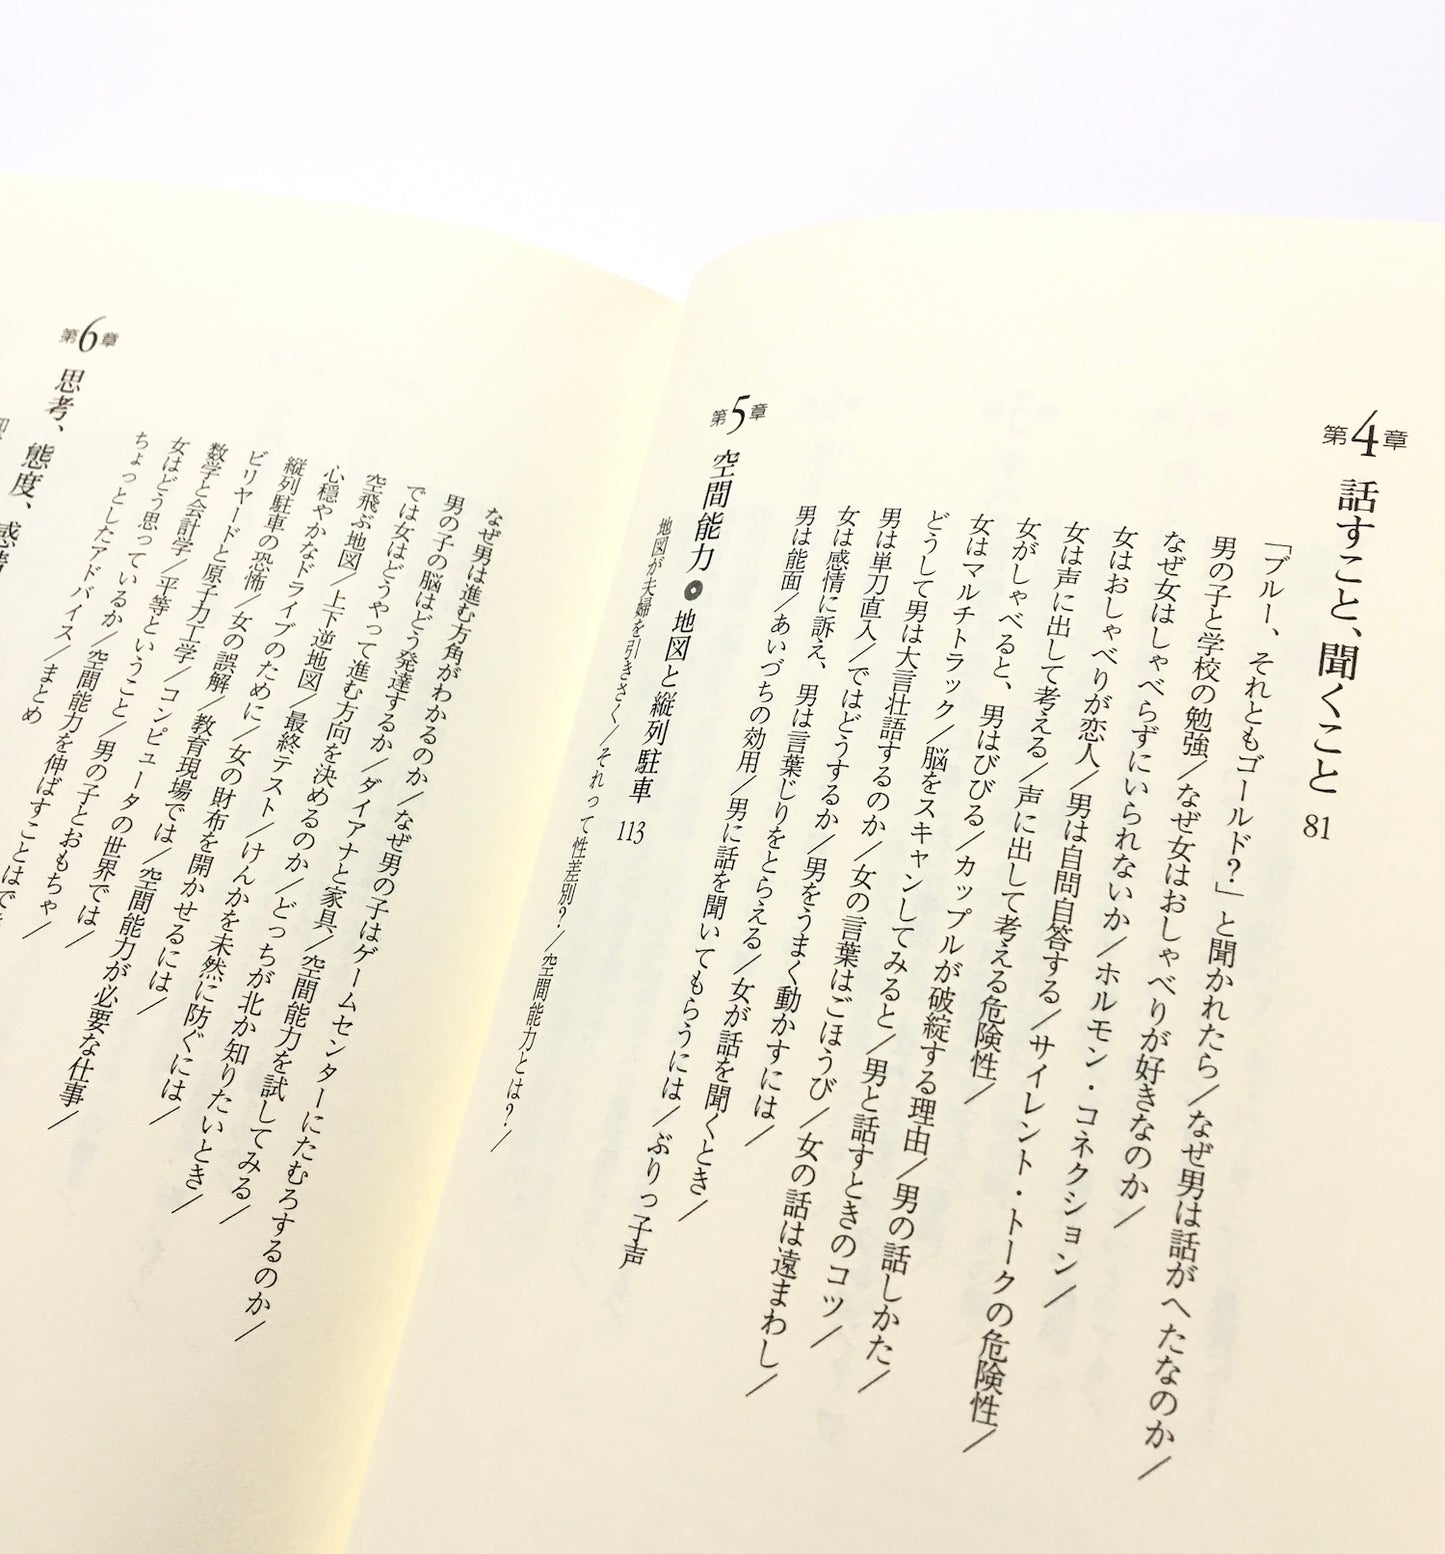 第4章 話すこと、聞くこと 81
「ブルー、それともゴールド?」と聞かれたら/なぜ男は話がへたなのか/
男の子と学校の勉強/なぜ女はおしゃべりが好きなのか/
なぜ女はしゃべらずにいられないか/ホルモン・コネクション/
女はおしゃべりが恋人/男は自問自答する/サイレント・トークの危険性/
女は声に出して考える/声に出して考える危険性/
女がしゃべると、男はびびる/カップルが破綻する理由/男の話しかた/
女はマルチトラック/脳をスキャンしてみると/男と話すときのコツ/
どうして男は大言壮語するのか/女の言葉はごほうび/女の話は遠まわし/
男は単刀直入/ではどうするか/男をうまく動かすには/
女は感情に訴え、男は言葉じりをとらえる/女が話を聞くとき/
男は能面/あいづちの効用/男に話を聞いてもらうには/ぶりっ子声
第5章 空間能力 ● 地図と縦列駐車 113
地図が夫婦を引きさく/それって性差別?/空間能力とは?/
なぜ男は進む方角がわかるのか/なぜ男の子はゲームセンターにたむろするのか/
男の子の脳はどう発達するか/ダイアナと家具/空間能力を試してみる/
では女はどうやって進む方向を決めるのか/どっちが北か知りたいとき/
空飛ぶ地図/上下逆地図/最終テスト/けんかを未然に防ぐには/
心穏やかなドライブのために/女の財布を開かせるには/
縦列駐車の恐怖/女の誤解/教育現場では/空間能力が必要な仕事/
ビリヤードと原子力工学/コンピュータの世界では/
数学と会計学/平等ということ/男の子とおもちゃ/
女はどう思っているか/空間能力を伸ばすことはでき
ちょっとしたアドバイス/まとめ
第6章 思考、態度、感情